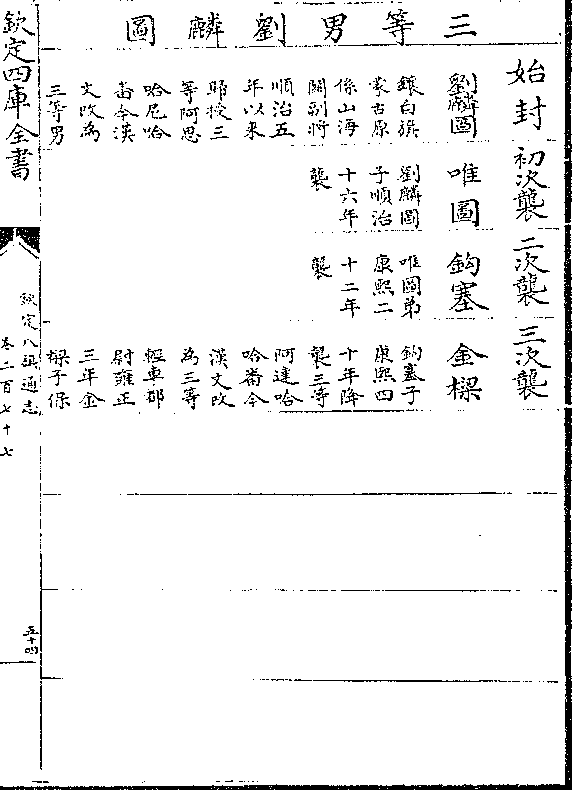 三等男劉麟圖
始封
劉麟圖
鑲白旗
蒙古原
係山海
關副將
順治五
年以來
歸授三
等阿思
哈尼哈
畨今漢
文改為
三等男
初次襲
唯圖
劉麟圖
子順治
十六年
襲
二次襲
鈎塞
唯圖弟
康熙二
十二年
襲
三次襲
金樑
鈎塞子
康熙四
十年降
襲三等
阿達哈
哈畨今
漢文改
為三等
輕車都
尉雍正
三年金
樑子保
欽定四庫全書
欽定八旗通志
卷二百七十七
五十四